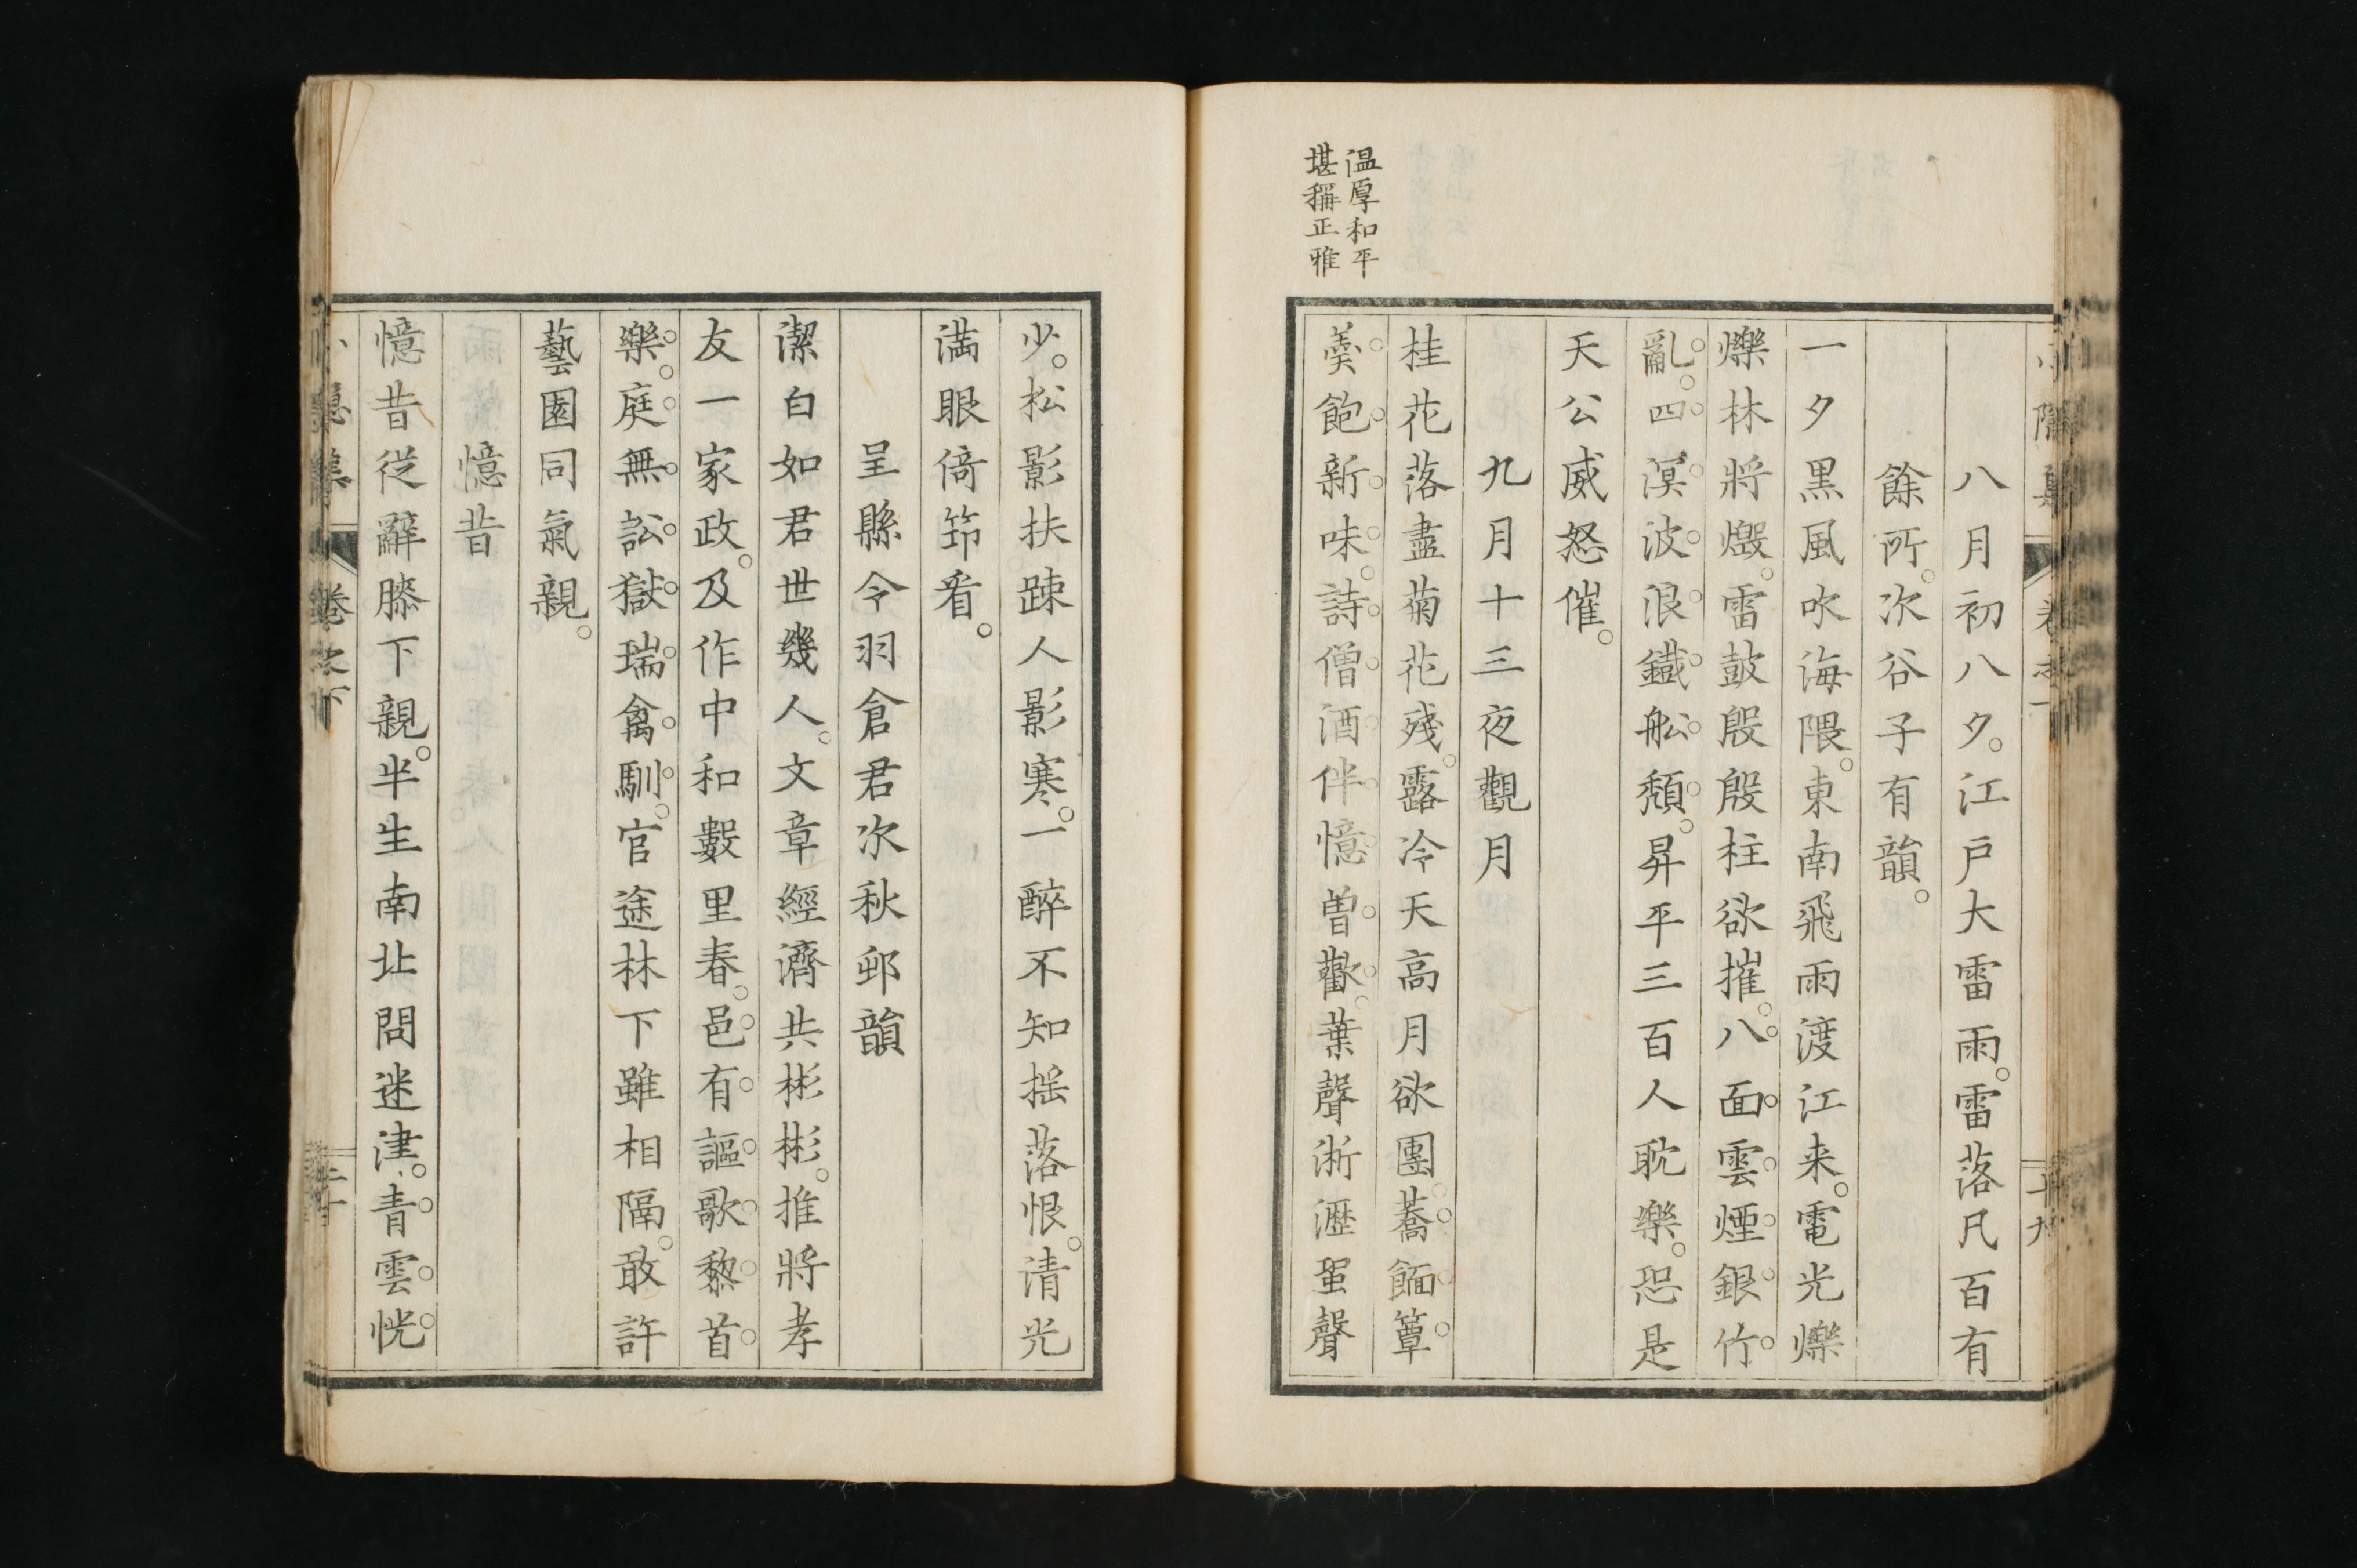 八月初八夕。江戸大雷雨。雷落凡百有
餘所。次谷子有韻。
一夕黒風吹海隈。東南飛雨渡江来。電光爍
爍林將燬。雷鼓殷殷柱欲摧。八面雲煙銀竹
亂。四溟波浪鐵舩頽。昇平三百人耽樂。恐是
天公威怒催。
九月十三夜觀月
桂花落盡菊花殘。露冷天高月欲團。蕎麵簟
羮飽新味。詩僧酒伴憶曽歡。葉聲淅瀝蛩聲
温厚和平
堪稱正雅
少。松影扶踈人影寒。一醉不知揺落恨。清光
満眼倚筇看。
呈縣令羽倉君次秋邨韻
潔白如君世幾人。文章經濟共彬彬。推將孝
友一家政。及作中和數里春。邑有謳歌黎首
樂。庭無訟獄瑞禽馴。官途林下雖相隔。敢許
藝園同氣親。
憶昔
憶昔従辭膝下親。半生南北問迷津。青雲恍
卷之下
二十